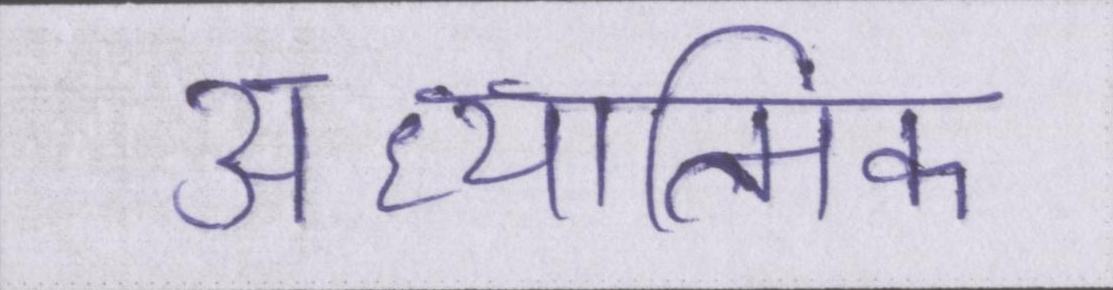 अध्यात्मिंक